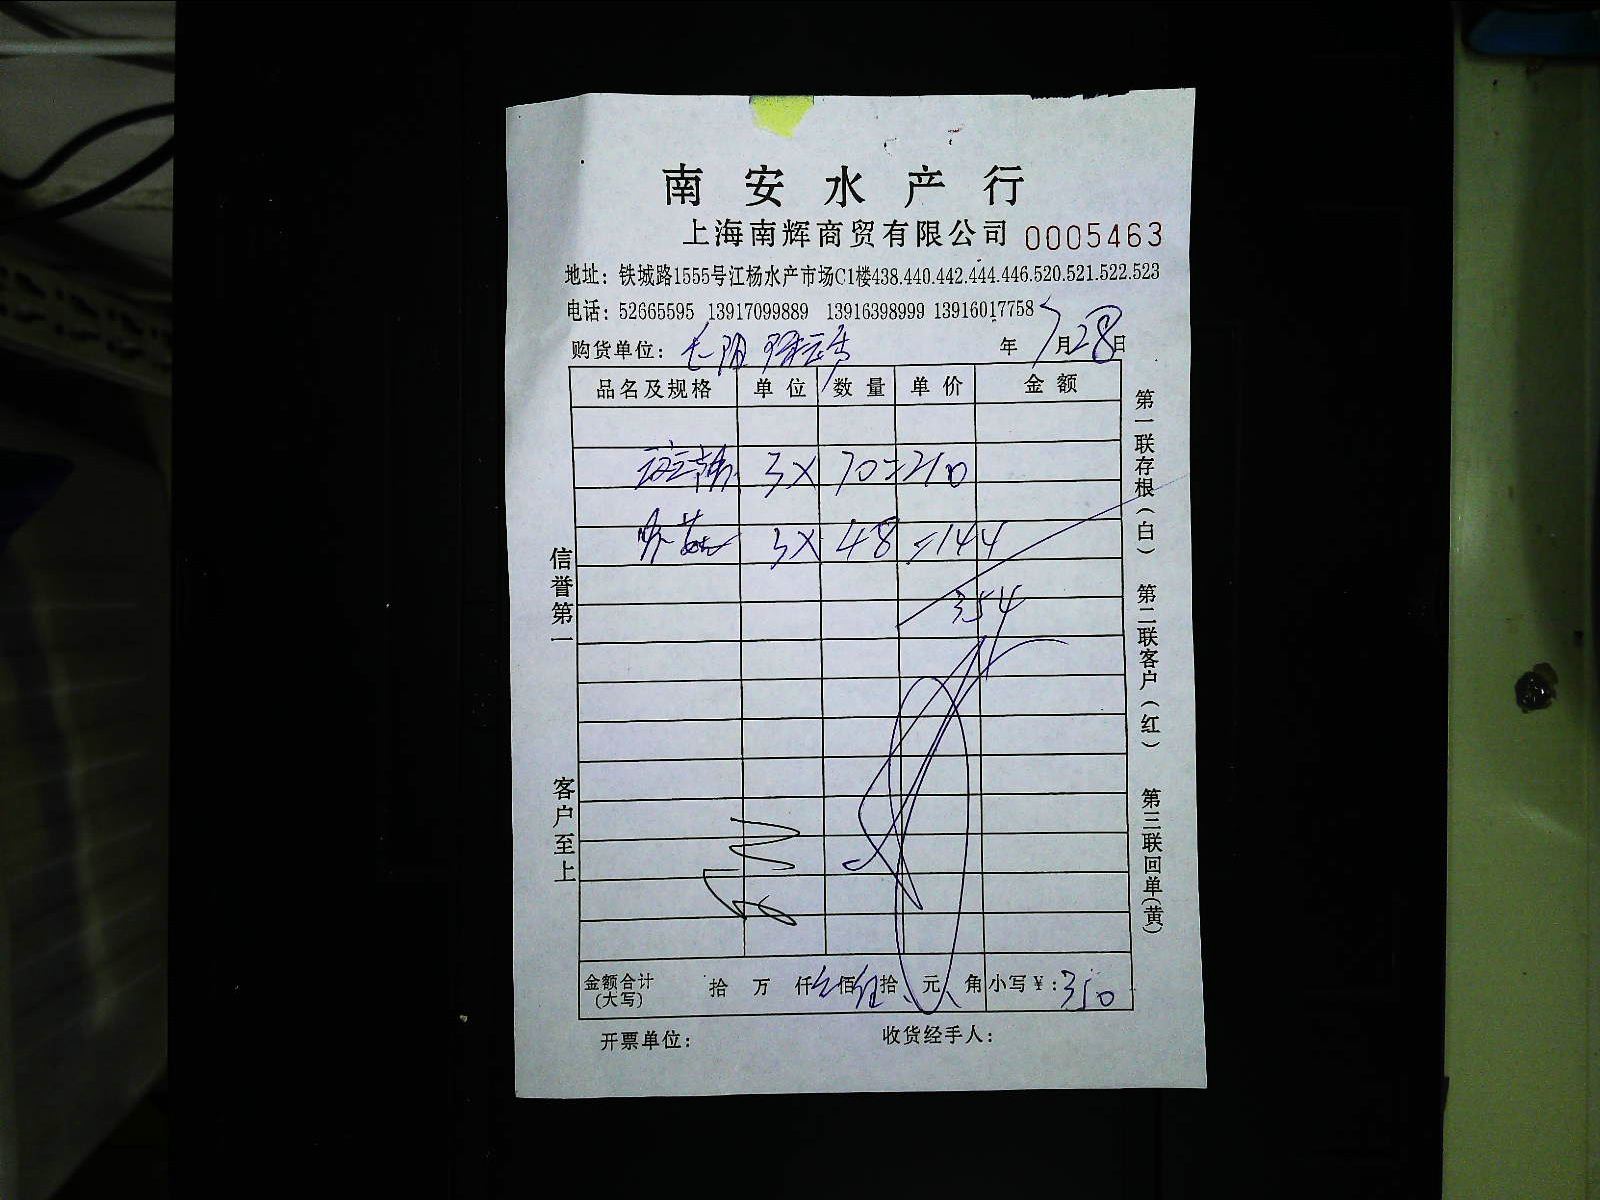 南安水产行
上海南辉商贸有限公司 0005463
地址：铁城路1555号江杨水产市场C1楼438.440.442.444.446.520.521.522.523
电话：52665595 13917099889 13916398999 13916017758
购货单位： 年 7月28日
品名及规格 单位 数量 单价 金额
3X 70=210
3X 48=144
354
金额合计(大写) 拾 万 仟 佰 伍拾 元 角 小写￥：350
开票单位： 收货经手人：
信誉第一
客户至上
第一联存根(白)
第二联客户(红)
第三联回单(黄)